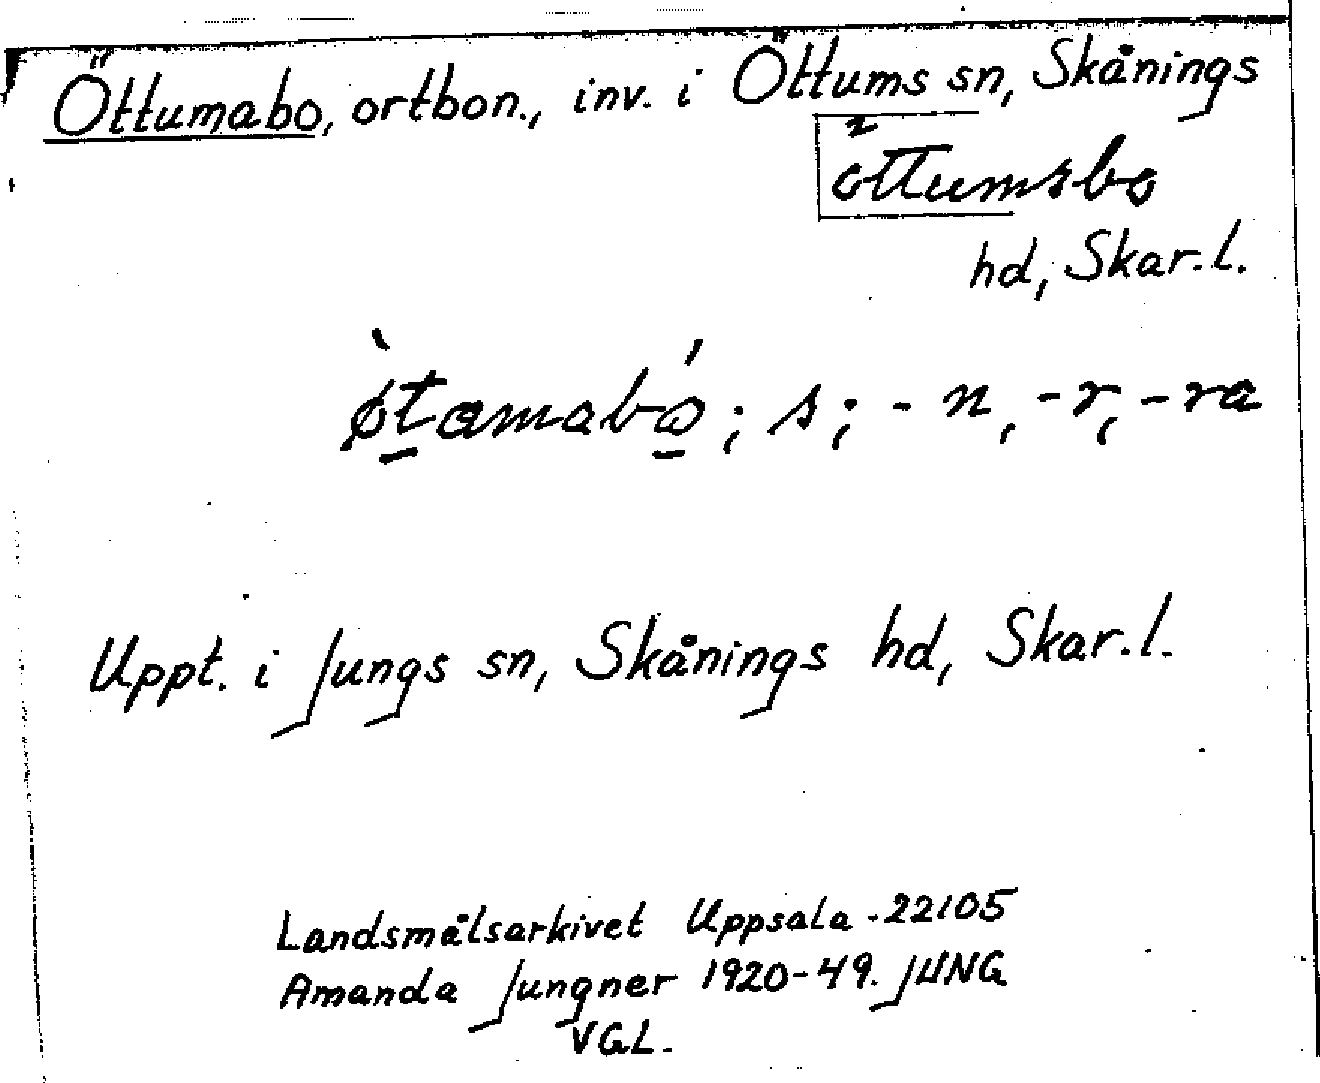 Öttumabo, ortbon., inv. i Öttums sn, Skånings
öttumsbo
hd, Skar. l.
øtamabo; s; -n, -r, -ra
Uppt. i Jungs sn, Skånings hd, Skar. l.
Landsmålsarkivet Uppsala. 22105
Amanda Jungner 1920-49. JUNG
VGL.